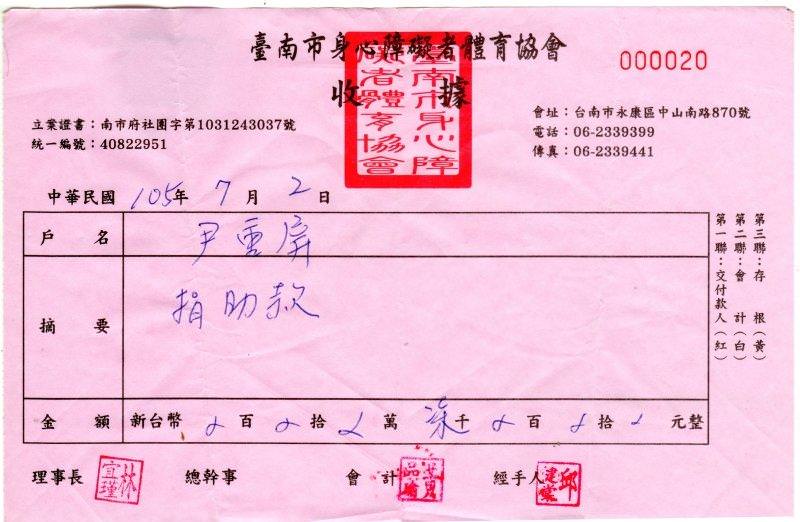 臺南市身心障礙者體育協會
000020
收據
臺南市身心障礙者體育協會
立案證書：南市府社團字第1031243037號
統一編號：40822951
會址：台南市永康區中山南路870號
電話：06-2339399
傳真：06-2339441
中華民國 105年 7月 2日
戶名 尹重屏
摘要 捐助款
金額 新台幣 百 拾 萬 柒千 百 拾 元整
第一聯：交付款人（紅）
第二聯：會計（白）
第三聯：存根（黃）
理事長 林宣瑾 總幹事 會計 經手人 邱